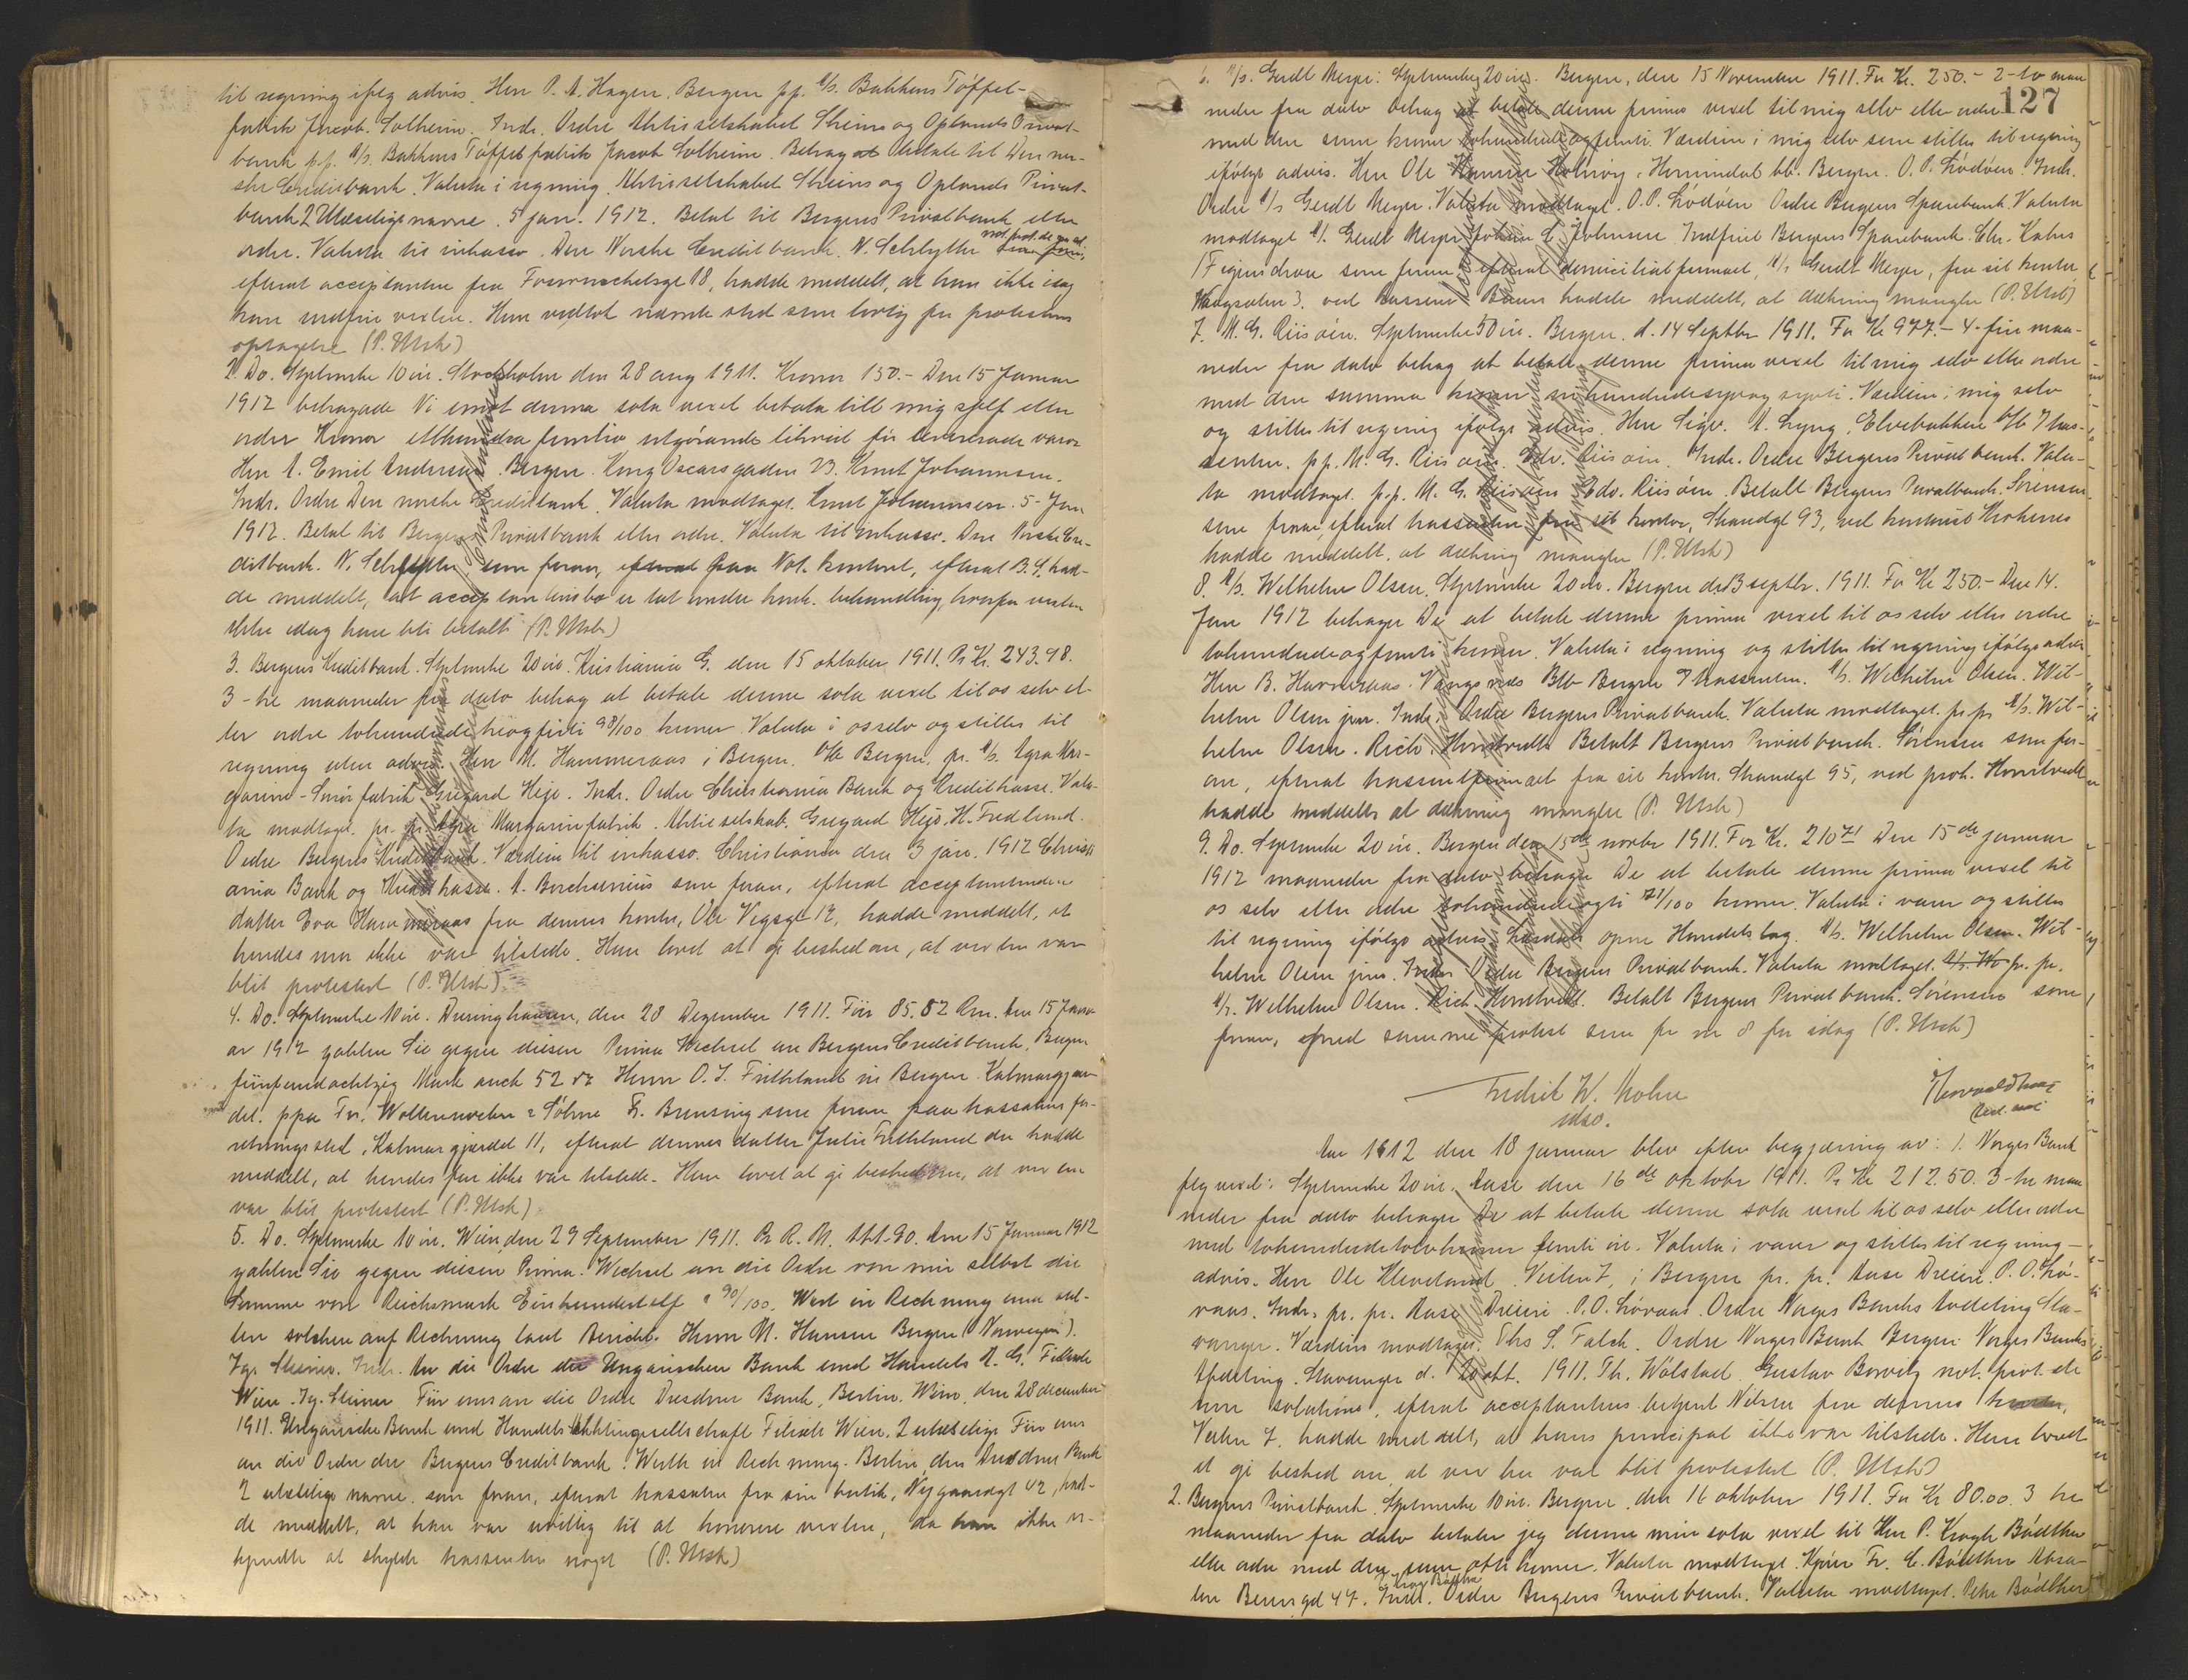 til regning ifølg advis. Herr P. A. Hagen. Bergen pp. A/s. Bakkens Tøffel-
fabrik Jacob Solheim. Indr. Ordre Aktieselskabet Skiens og Oplands Privat-
bank p.p. A/s. Bakkens Tøffelfabrik Jacob Solheim. Behag at betale til Den nor-
ske Creditbank. Valuta i regning. Aktieselskabet Skiens og Oplands Privat-
bank 2 Ulæselige navne. 5 jan. 1912. Betal til Bergens Privatbank eller
ordre. Valuta til inkasso. Den Norske Creditbank. N. Schlytter not. prot. de non sol.
efterat acceptanten fra 18, hadde meddelt, at han ikke idag
kan indfri vexlen. Han vedtok nævnte sted som lovlig for protestens
optagelse (P. Utsk)
2. Do. Stplmrke 10 øre. Stockholm den 28 aug 1911. Kronor 150.- Den 15 Januar
1912 behagade Vi emot denna sola vexel betala till mig sjelf eller
order Kronor etthundra femtio utgörande likvid för levererade varor
Herr A. Emil Andersen. Bergen. Kong Oscarsgaden 23. Knut Johannsen.
Indr. Ordre Den norske Creditbank. Valuta modtaget. Knut Johannsen. 5- Jan
1912. Betal til Bergens Privatbank eller ordre. Valuta til Inkasso. Den Norske Cre-
ditbank. N. Schlytter som foran, efterat fra Not. kontoret, efterat B. S. had-
de meddelt, at acceptantens bo er tat under konk. behandling, hvorfor vexlen
ikke idag kan bli betalt (P. Utsk)
3. Bergens Kreditbank. Stplmrke 20 øre. Kristiania G. den 15 oktober 1911. Pr Kr. 243.98.
3-tre maaneder fra dato behag at betale denne sola vexel til os selv el-
ler ordre tohundrede treogfirti 98/100 kroner Valuta i os selv og stilles til
regning uten advis. Herr M. Hammeraas i Bergen. Bb Bergen. pr. A/s. Agra Mar-
garin- Smørfabrik Gregard Heje. Indr. Ordre Christiania Bank og Kreditkasse. Valu-
ta modtaget. pr. pr. Agra Margarinfabrik. Aktieselskab. Gregard Heje. H. Fredlund.
Ordre Bergens Kreditbank. Værdien til inkasso. Christiania den 3 jan. 1912 Christi
ania Bank og Kreditkasse. A. Borchsenius som foran, efterat acceptantinden
datter Eva Hammeraas fra dennes kontor, Ole Vigsgt 12, hadde meddelt, at
hendes mor ikke var tilstede. Hun lovet at gi besked om, at vexlen var
blit protestert (P. Utsk).
4. Do. Stplmrke 10 øre. Duringhausen, den 28 Dezember 1911. Für 85.52 Rm. Am 15 Janu
ar 1912 zahlen Sie gegen diesen Prima Wechsel an Bergens Creditbank, Bergen
fünfundachtzig Mark auch 52 Herrn O. J. Frithland in Bergen. Kalmargjær-
det. ppa Fr. Wollenweber & Söhne Fr. Brensing som foran paa kassatens for-
retningssted, Kalmargjærdet 11, efterat dennes datter Julie Frithland der hadde
meddelt, at hendes far ikke var tilstede. Hun lovet at gi besked om, at vexlen
var blit protestert (P. Utsk).
5. Do. Stplmrke 10 øre. Wien, den 29 September 1911. Pr R. M. 111.90. Am 15 Januar 1912
zahlen Sie gegen diesen Prima. Wechsel an die Ordre von mir selbst die
Summe von Reichsmark Einhundertelf & 90/100. Wert in Rechnung und stel-
len solchen auf Rechnung laut Bericht. Herrn M. Hansen Bergen (Norwegen).
Ig. Steiner. Indr. An die Ordre der Ungarischen Bank und Handels A. G. Filiale
Wien. Ig. Steiner Für uns an die Ordre Dresdner Bank, Berlin. Wien, den 28 december
1911. Ungarische Bank und Handels Aktiengesellschaft Filiale Wien. 2 ulæselige Für uns
an die Ordre der Bergens Creditbank. Werth in Rechnung. Berlin, den Dresdner Bank
2 ulæselige navne. som foran, efterat kassaten fra sin butik, Nygaardsgt 42, had-
de meddelt, at han var uvillig til at honorere vexlen, da han ikke er-
kjendte at skylde trassenten noget (P. Utsk)
127
6. A/s. Gerdt Meyer: Stplmrke 20 øre. Bergen, den 15 November 1911. For Kr. 250.- 2-to maa
neder fra dato behag at betale denne prima vexel til mig selv eller ordre
med den sum kroner tohundrede og femti. Værdien i mig selv som stilles til regning
ifølge advis. Herr Ole Hansen Holmøy. Hornindal bb. Bergen. O. P. Lødøen. Indr.
Ordre A/s Gerdt Meyer. Valuta modtaget. O. P. Lødøen Ordre Bergens Sparebank. Valuta
modtaget A/s. Gerdt Meyer Johan C. Johnsen Indfriet Bergens Sparebank. Chr. Kahrs
som foran, efterat domiciliatfirmaet, A/s Gerdt Meyer, fra sit kontor
Vaagsalm 3. ved kasserer Bruun hadde meddelt, at dækning mangler (P. Utsk)
7. M. G. Riisøen. Stplmrke 50 øre. Bergen. d. 14 Septbr 1911. For Kr 977.- 4-fire maa-
neder fra dato behag at betale denne prima vexel til mig selv eller ordre
med den summa kroner nihundredesyvogsytti. Værdien i mig selv
og stilles til regning ifølge advis. Herr Sigv. A. Lyng, Elvebakken b/b Tras-
senten. p.p. M. G. Riisøen. Edv. Riisøen. Indr. Ordre Bergens Privatbank. Valu-
ta modtaget. p.p. M. G. Riisøen Edv. Riisøen. Betalt Bergens Privatbank. Sørensen
som foran, efterat trassenten fra sit kontor, Strandgt 93, ved kontorist Krohnes
hadde meddelt, at dækning mangler (P. Utsk)
8. A/s. Wilhelm Olsen. Stplmrke 20 øre. Bergen den 13 septbr. 1911. For Kr 250.- Den 14.
Jan 1912 behager De at betale denne prima vexel til os selv eller ordre
tohundredeogfemti kroner. Valuta i regning og stilles til regning ifølge advis
Herr B. Hammeraas. Vangsnes Blb Bergen Trassenten. A/s. Wilhelm Olsen. Wil-
helm Olsen jun. Indr. Ordre Bergens Privatbank. Valuta modtaget. pr. pr. A/s. Wil-
helm Olsen. Rich. Horntvedt Betalt Bergens Privatbank. Sørensen som for-
an, efterat trassentfirmaet fra sit kontor. Strandgt 95, ved prok. Horntvedt
hadde meddelt at dækning mangler (P. Utsk)
9. Do. Stplmrke 20 øre. Bergen den 15de novbr 1911. For Kr. 210 71 Den 15de januar
1912 maaneder fra dato behager De at betale denne prima vexel til
os selv eller ordre tohundredeogti 71/100 kroner. Valuta i varer og stilles
til regning ifølge advis Lærdals opne Handelslag. A/s. Wilhelm Olsen. Wil-
helm Olsen jun. Indr. Ordre Bergens Privatbank. Valuta modtaget. pr. pr.
A/s. Wilhelm Olsen. Rich. Horntvedt. Betalt Bergens Privatbank. Sørensen som
foran, med samme protest som for nr 8 for idag (P. Utsk)
Fredrik W. Mohn
Aar 1912 den 18 januar blev efter begjæring av: 1. Norges Bank
følg vexel: Stplmrke 20 øre. Aase den 16de oktobr 1911. Pr Kr 212.50. 3-tre maa
neder fra dato behager De at betale denne sola vexel til os selv eller ordre
med tohundredetolvkroner femti øre. Valuta i varer og stilles til regning -
advis. Herr Ole Kleveland Veiten 7, i Bergen pr. pr. Aase Dreieri. P. O. Lø-
vaas. Indr. pr. pr. Aase Dreieri. P. O. Løvaas. Ordre Norges Banks Avdeling Sta-
vanger. Værdien modtaget. Ths S. Falck. Ordre Norges Bank Bergen Norges Banks
Afdeling. Stavanger d. 20 okt. 1911. Th. Wølstad. Gustav Borvitz not. prot. de
non solutione, efterat acceptantens betjent Nilsen fra dennes
Veiten 7. hadde meddelt, at hans principal ikke var tilstede. Han lovet
at gi besked om, at vexlen var blit protestert (P. Utsk)
2. Bergens Privatbank. Stplmrke 10 øre. Bergen. den 16 oktober 1911. For Kr 80.00. 3 tre
maaneder fra dato betaler jeg denne min sola vexel til Herr P. Krogh Bødtker
eller ordre med den sum otti kroner. Valuta modtaget. Fr. C. Bødtker Absa-
lon Beyersgd 47. Indr. Ordre Bergens Privatbank. Valuta modtaget. Petr Bødtker